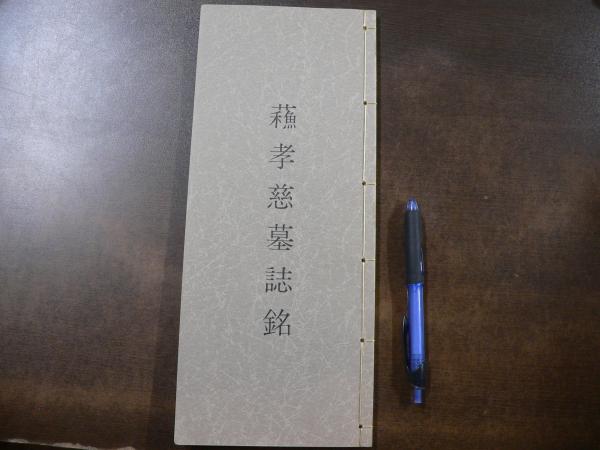 蘓孝慈墓誌銘